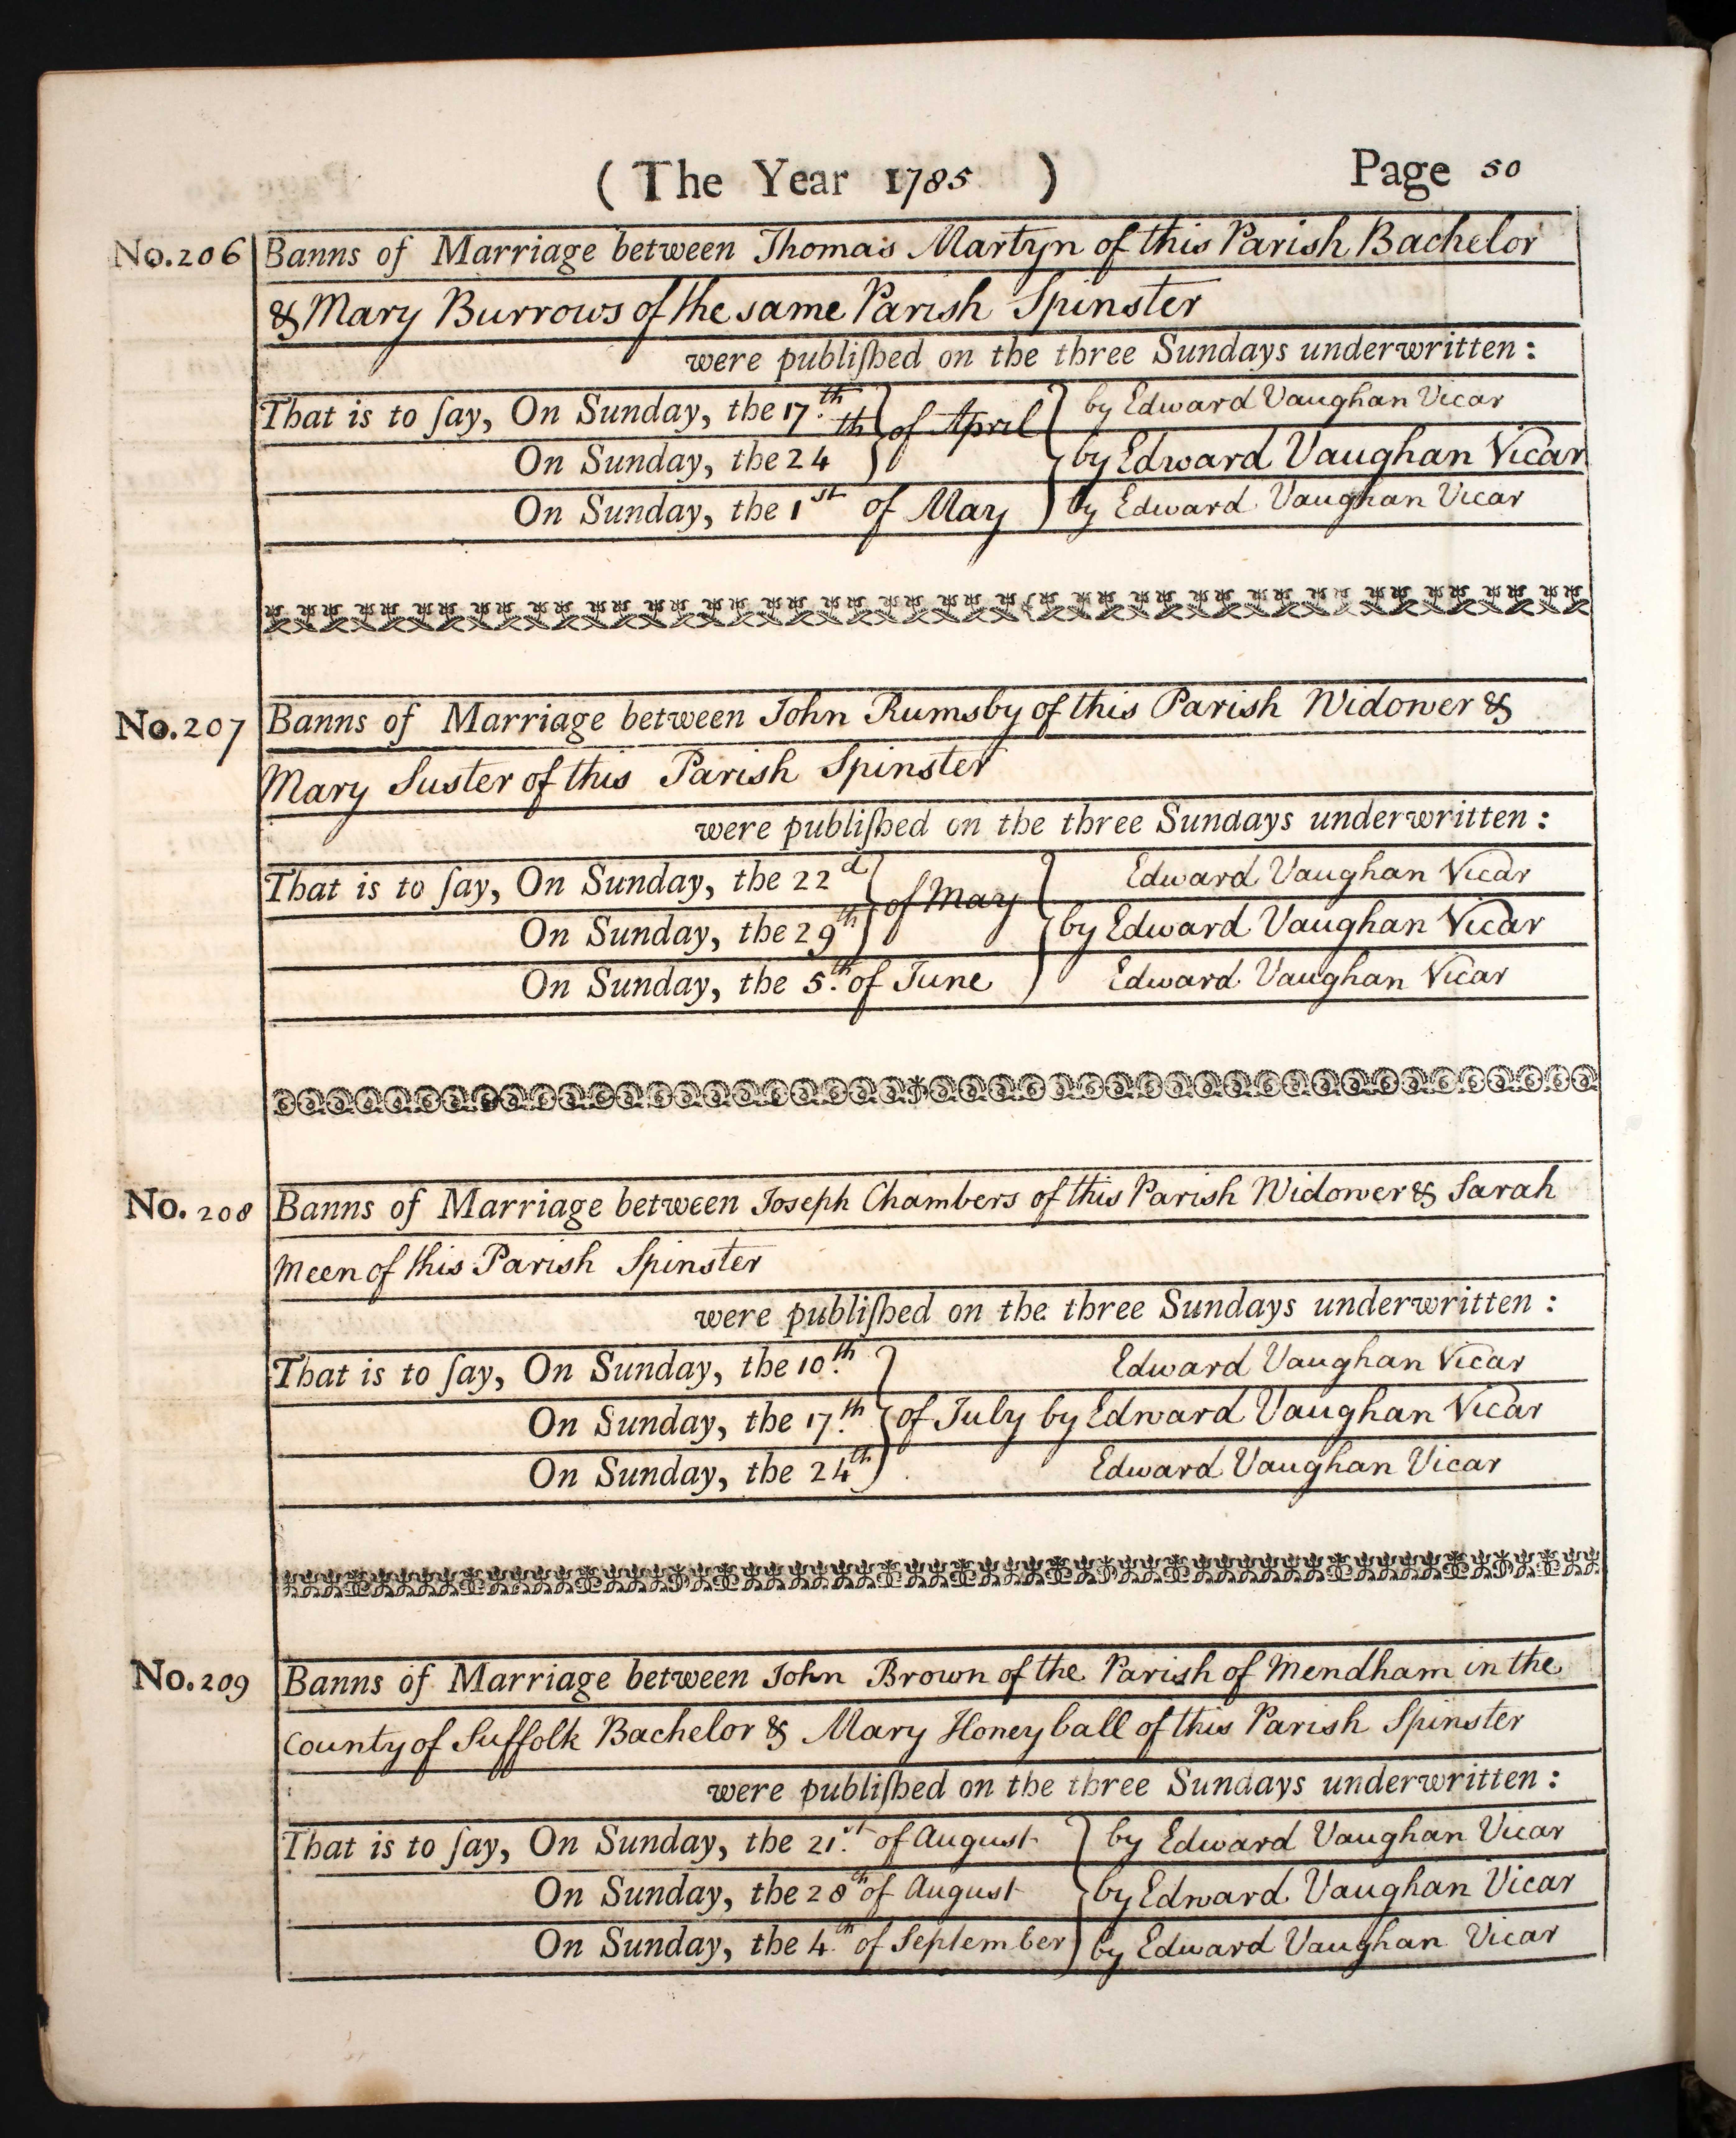 (The Year 1785) Page 50
No. 206 Banns of Marriage between Thomas Martyn of this Parish Bachelor
& Mary Burrows of the same Parish Spinster
were publiſhed on the three Sundays underwritten:
That is to ſay, On Sunday, the 17.th } of April } by Edward Vaughan Vicar
On Sunday, the 24th } by Edward Vaughan Vicar
On Sunday, the 1st of May } by Edward Vaughan Vicar
No. 207 Banns of Marriage between John Rumsby of this Parish Widower &
Mary Suster of this Parish Spinster
were publiſhed on the three Sundays underwritten:
That is to ſay, On Sunday, the 22d } of May { Edward Vaughan Vicar
On Sunday, the 29th } by Edward Vaughan Vicar
On Sunday, the 5.th of June } Edward Vaughan Vicar
No. 208 Banns of Marriage between Joseph Chambers of this Parish Widower & Sarah
Meen of this Parish Spinster
were publiſhed on the three Sundays underwritten:
That is to ſay, On Sunday, the 10.th } Edward Vaughan Vicar
On Sunday, the 17.th } of July by Edward Vaughan Vicar
On Sunday, the 24th } Edward Vaughan Vicar
No. 209 Banns of Marriage between John Brown of the Parish of Mendham in the
County of Suffolk Bachelor & Mary Honeyball of this Parish Spinster
were publiſhed on the three Sundays underwritten:
That is to ſay, On Sunday, the 21.st of August } by Edward Vaughan Vicar
On Sunday, the 28th of August } by Edward Vaughan Vicar
On Sunday, the 4.th of September } by Edward Vaughan Vicar